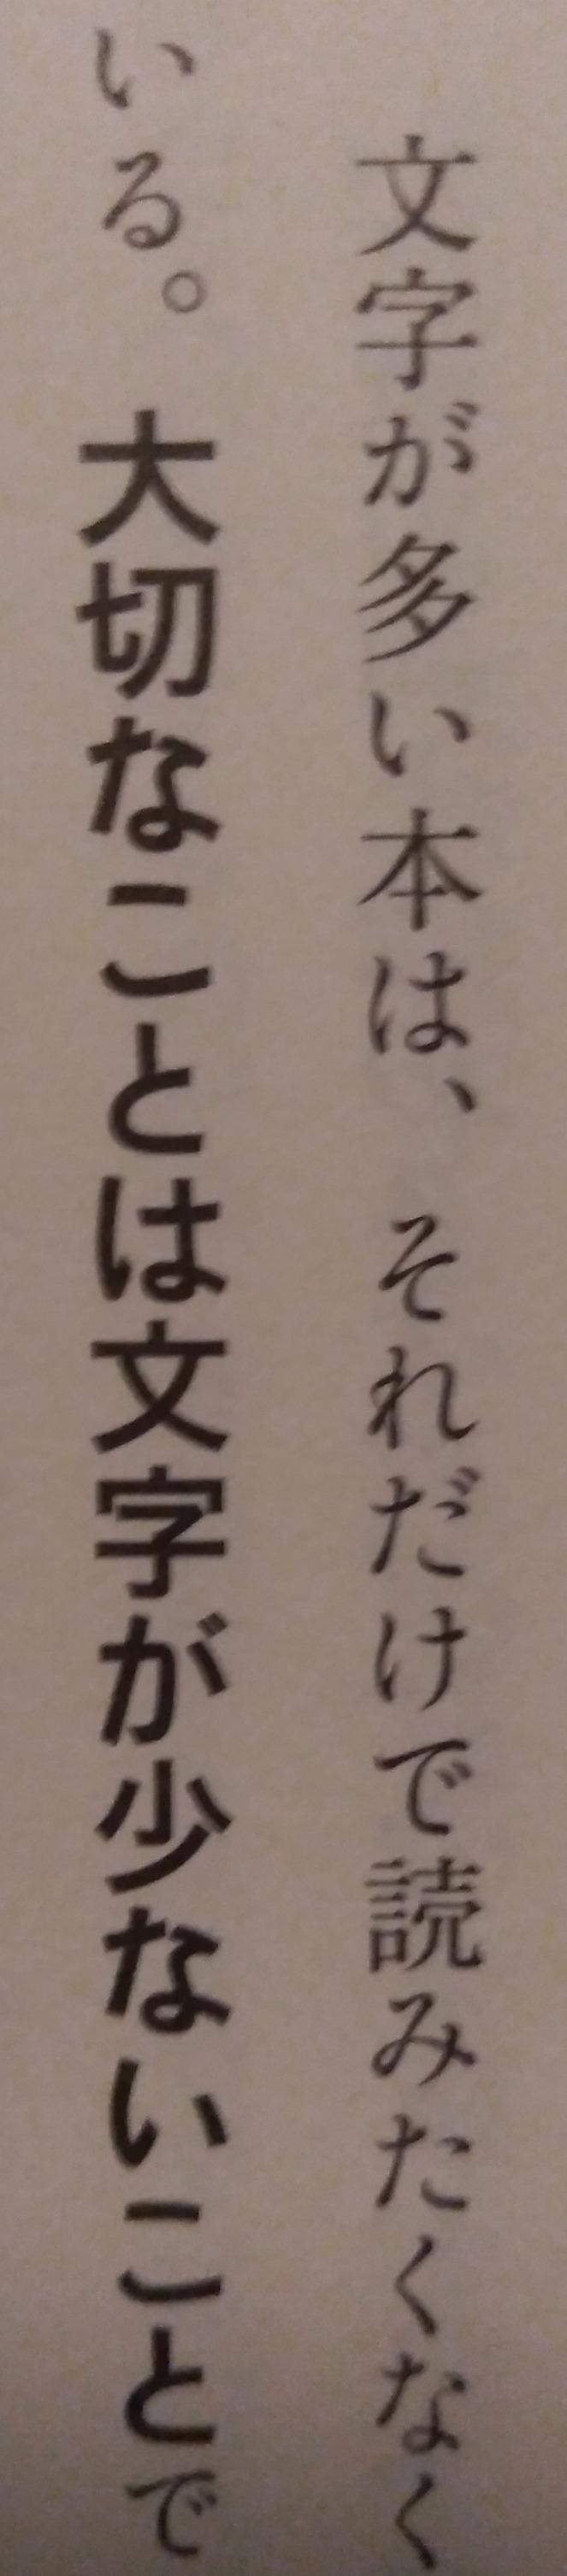 文字が多い本は、それだけで読みたくなく
いる。大切なことは文字が少ないことで